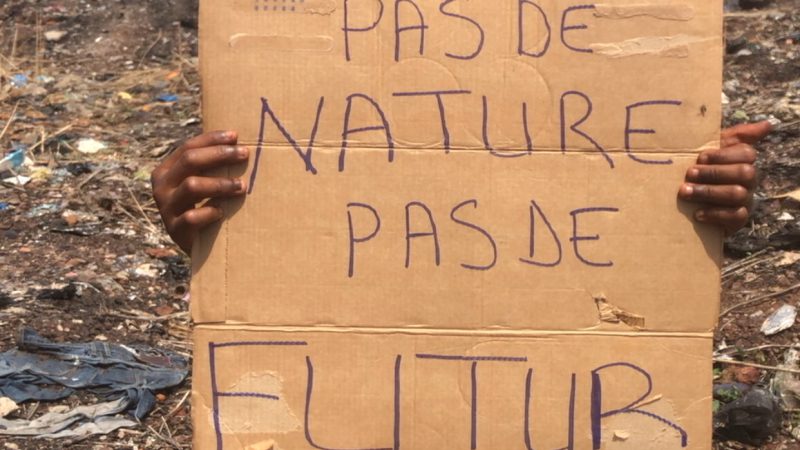 PAS DE
NATURE
PAS DE
FUTUR